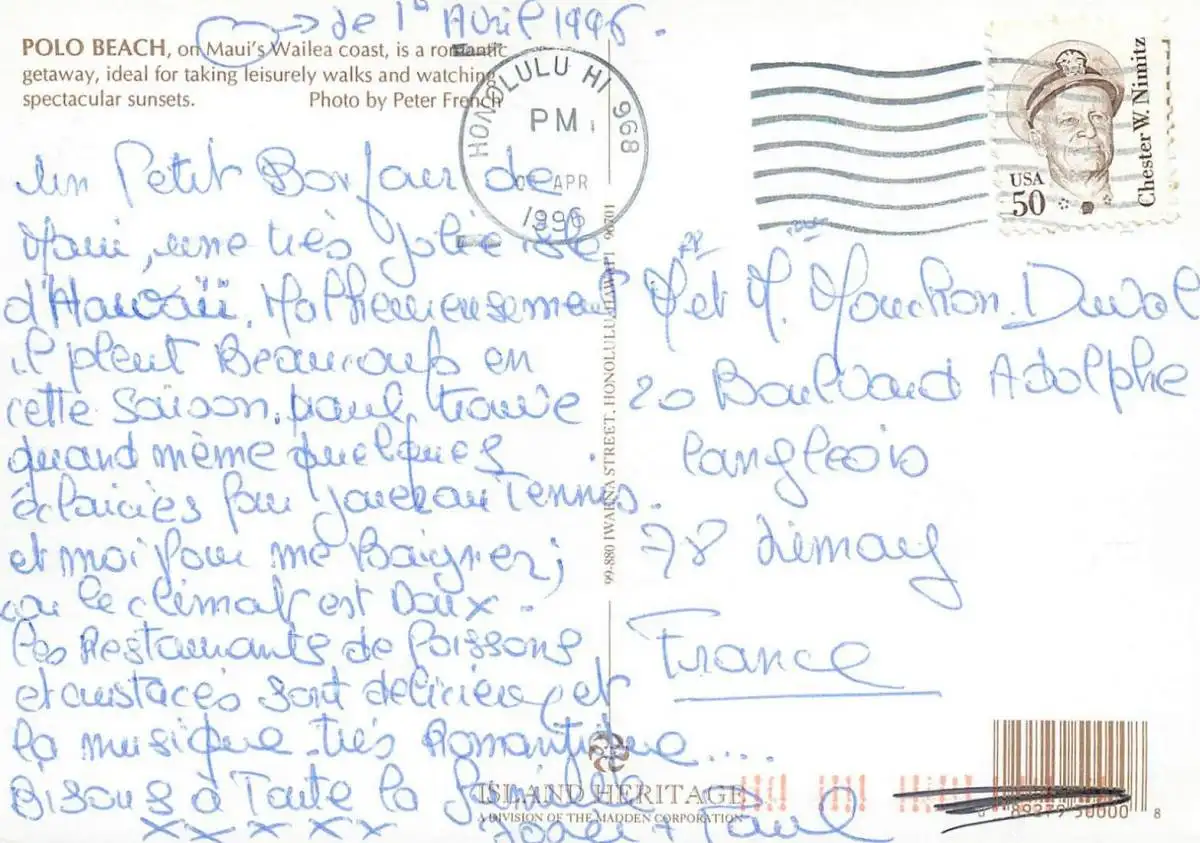 de 1er Avril 1996.
POLO BEACH, on Maui's Wailea coast, is a romantic
getaway, ideal for taking leisurely walks and watching
spectacular sunsets. Photo by Peter French
HONOLULU HI 968
PM
APR
1996
USA
50
Chester W. Nimitz
Un Petit Bonjour de
Maui, une très jolie isle
d'Hawaii. Malheureusement
il pleut Beaucoup en
cette Saison. paul, trouve
quand même quelques
éclaicies pour jouer au Tennis.
et moi pour me Baigner;
car le climat est Doux.
les Restaurants de Poissons
et crustacés sont delicieux et
la musique très Romantique....
Bisous à Toute la famille
x x x x x
+ Paul
99-880 IWAENA STREET, HONOLULU, HAWAI'I 96701
M et M. Mouchon. Duval
20 Boulvard Adolphe
langlois
78 Limay
France
ISLAND HERITAGE
A DIVISION OF THE MADDEN CORPORATION